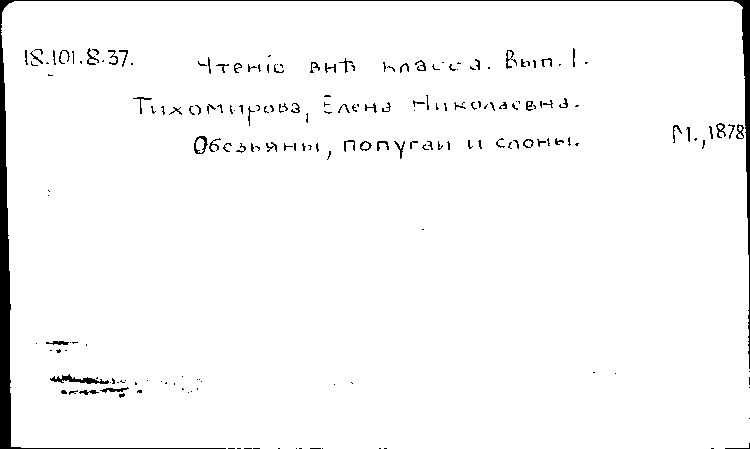 18.101.8.37. Чтеніе внѣ класса. Вып. 1.
Тихомирова, Елена Николаевна.
Обезьяны, попугаи и слоны. М., 1878